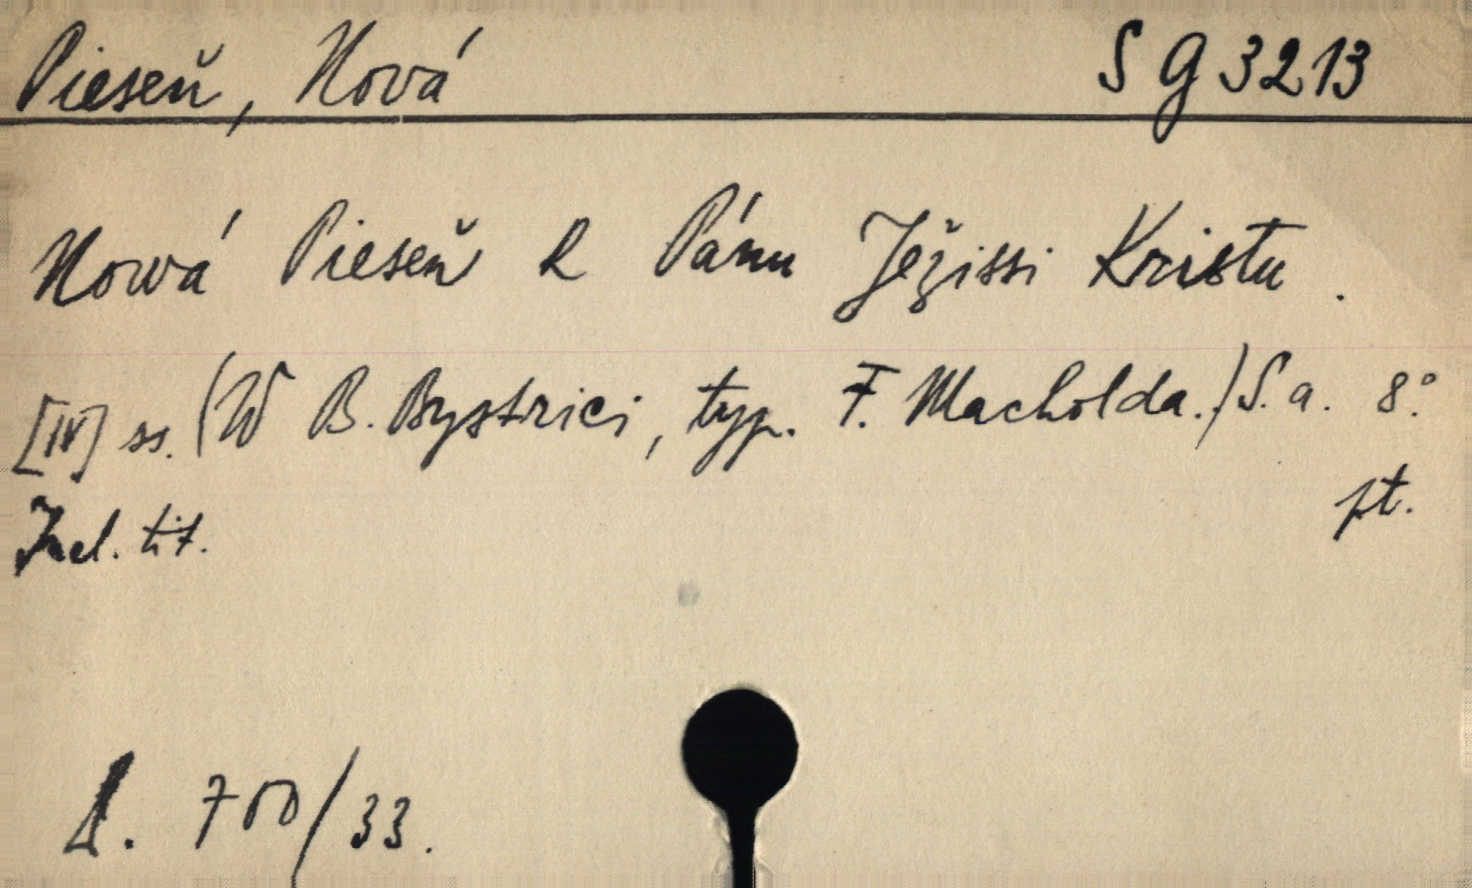 Pieseň, Nová
S G 3213
Nowá Pieseň k Pánu Ježissi Kristu.
[IV] ss. (W B. Bystrici, typ. F. Macholda.) S. a. 8°.
pt.
Incl. tit.
700/33.